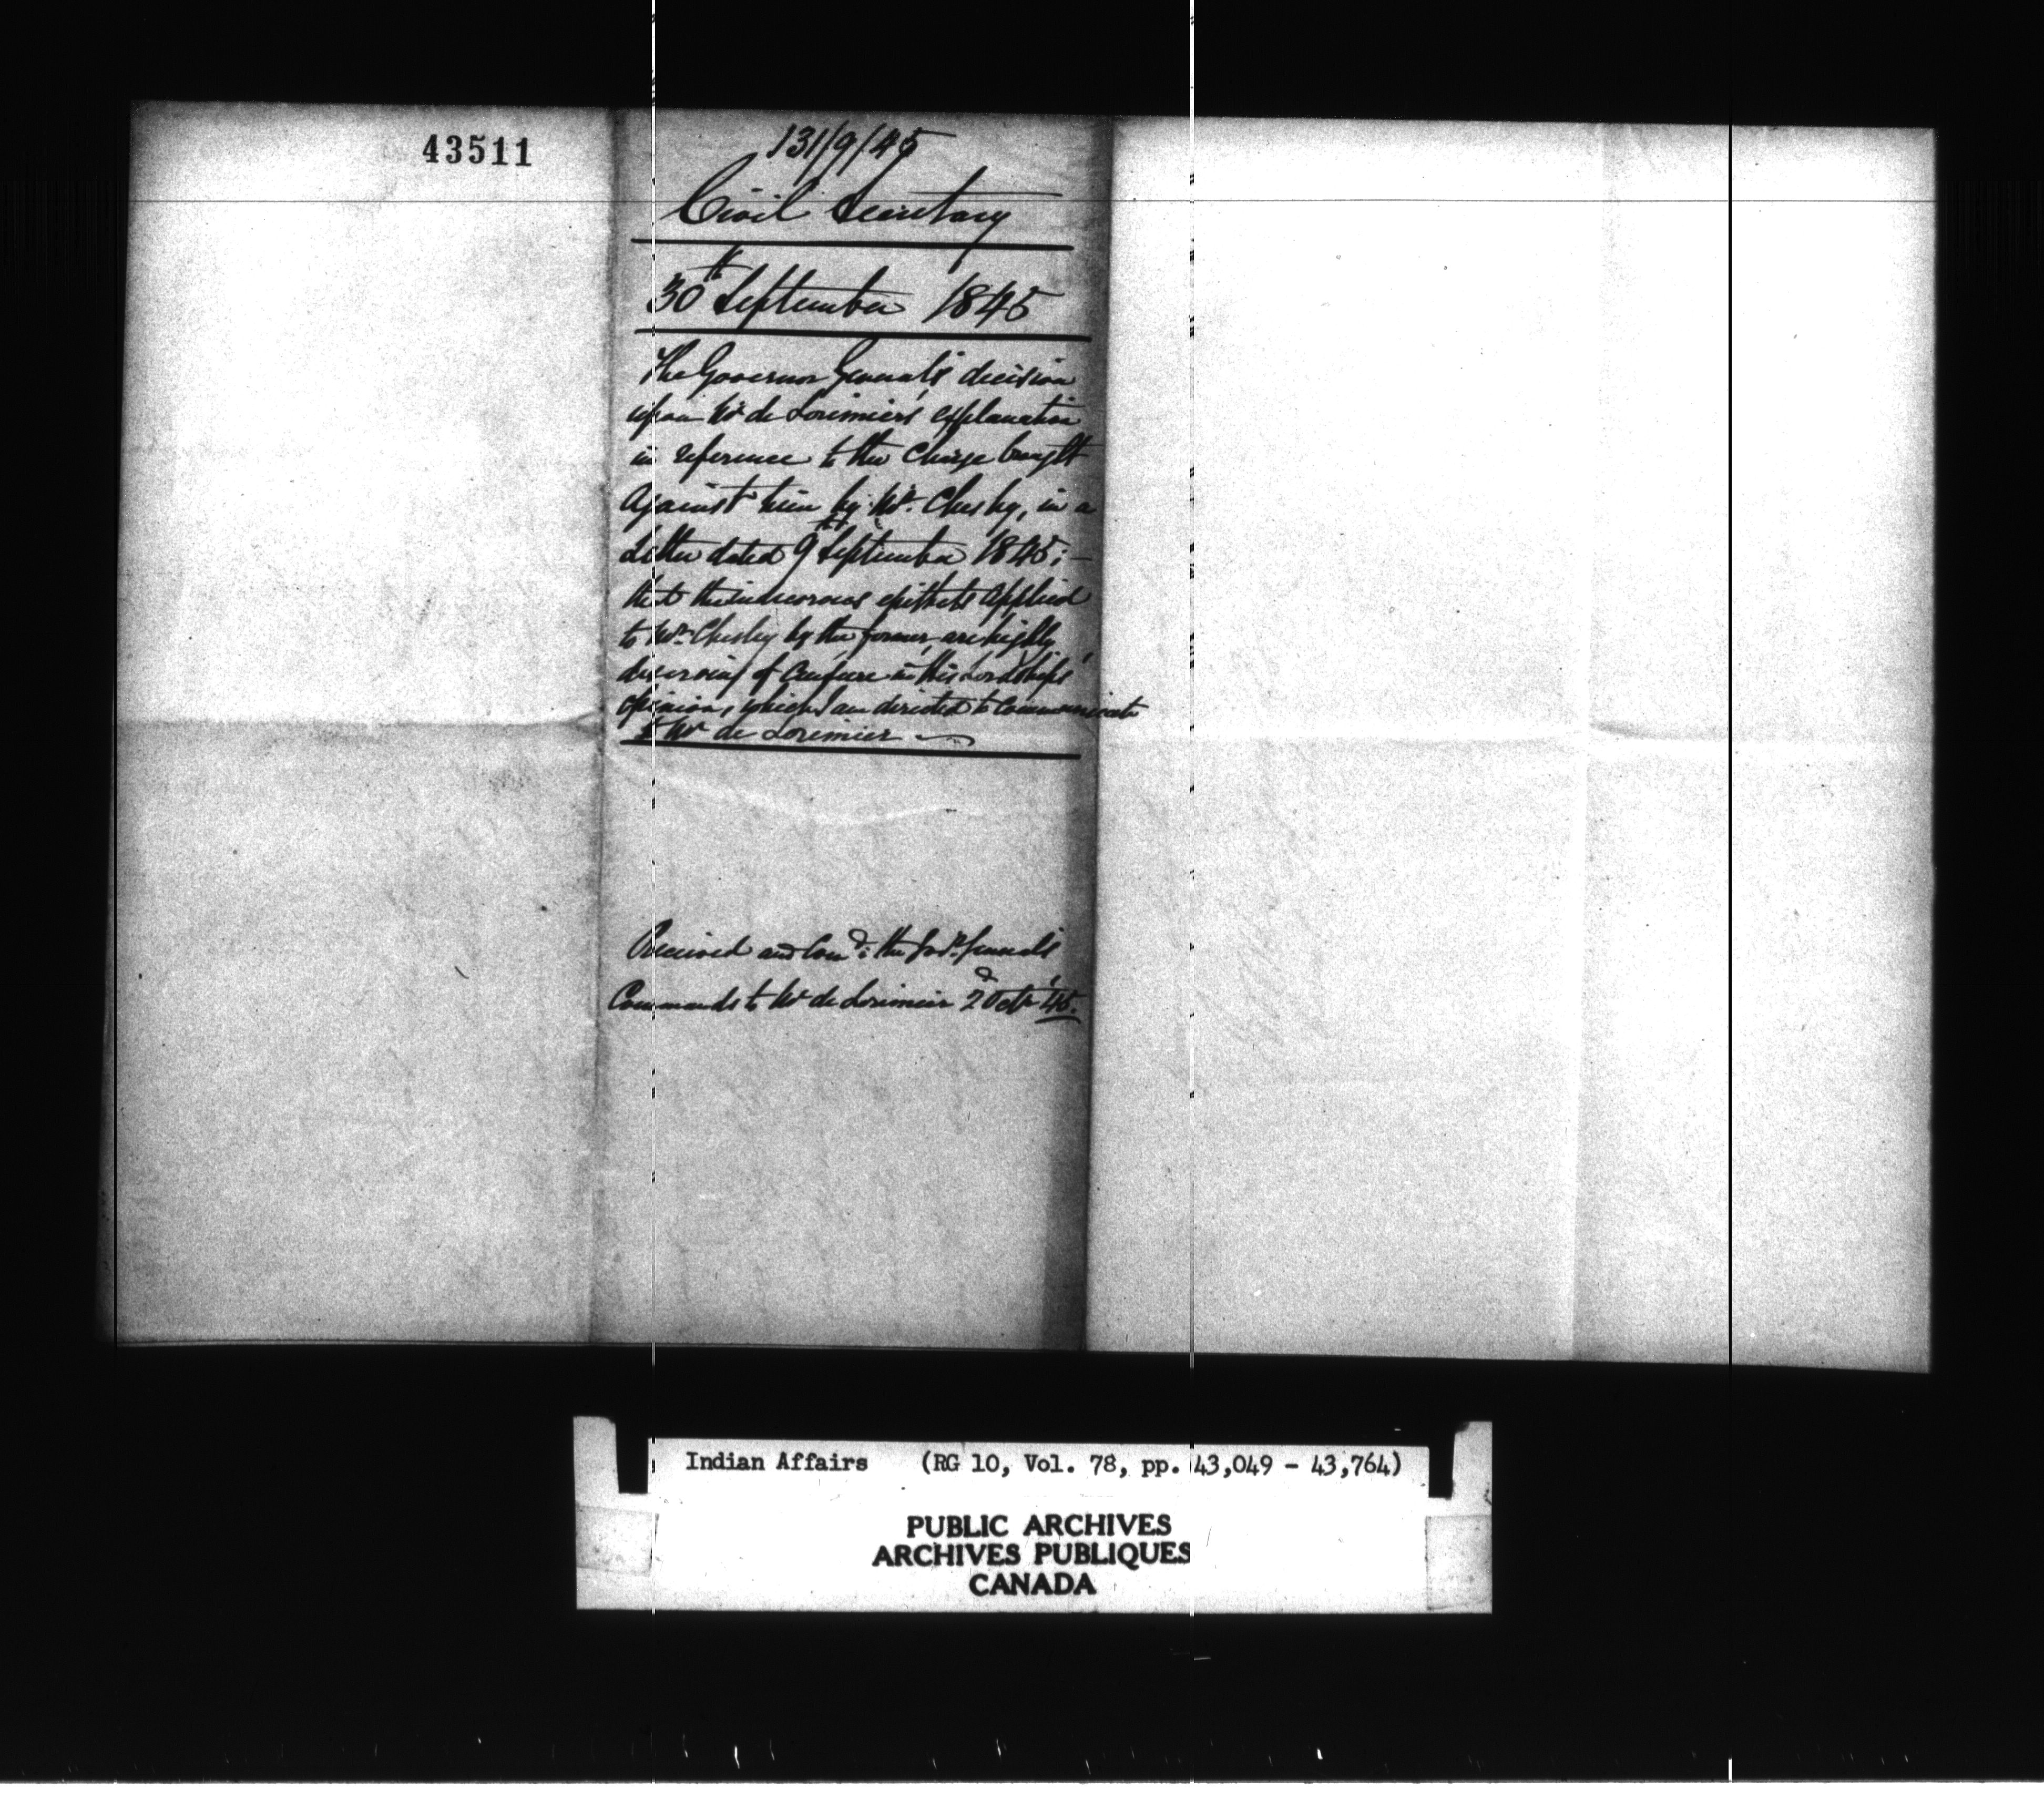 43511
131/9/45
Civil Secretary
30th September 1845
The Governor General's decision
upon Mr de Lorimier's explanation
in reference to the Charge brought
against him by Mr. Chesley, in a
Letter dated 9th September 1845;—
that the indecorous epithets applied
to Mr. Chesley by the former, are highly
deserving of Censure in His Lordship's
opinion, which I am directed to Communicate
to Mr de Lorimier
Received and Com'd: the Govr. General's
Commands to Mr de Lorimier 2d Octr '45.
Indian Affairs (RG 10, Vol. 78, pp. 43,049 - 43,764)
PUBLIC ARCHIVES
ARCHIVES PUBLIQUES
CANADA